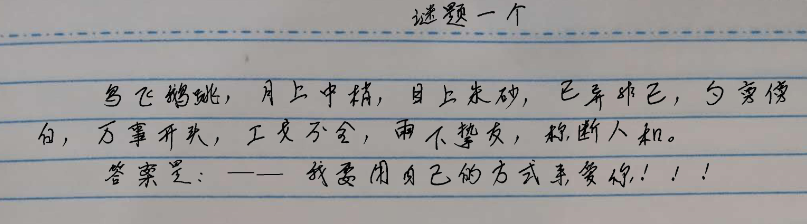 谜题一个
鸟飞鹅跳，月上中梢，目上朱砂，已弃非己，勺旁傍
白，万事开头，工戈不全，雨下挚友，称断人和。
答案是：—— 我要用自己的方式来爱你！！！